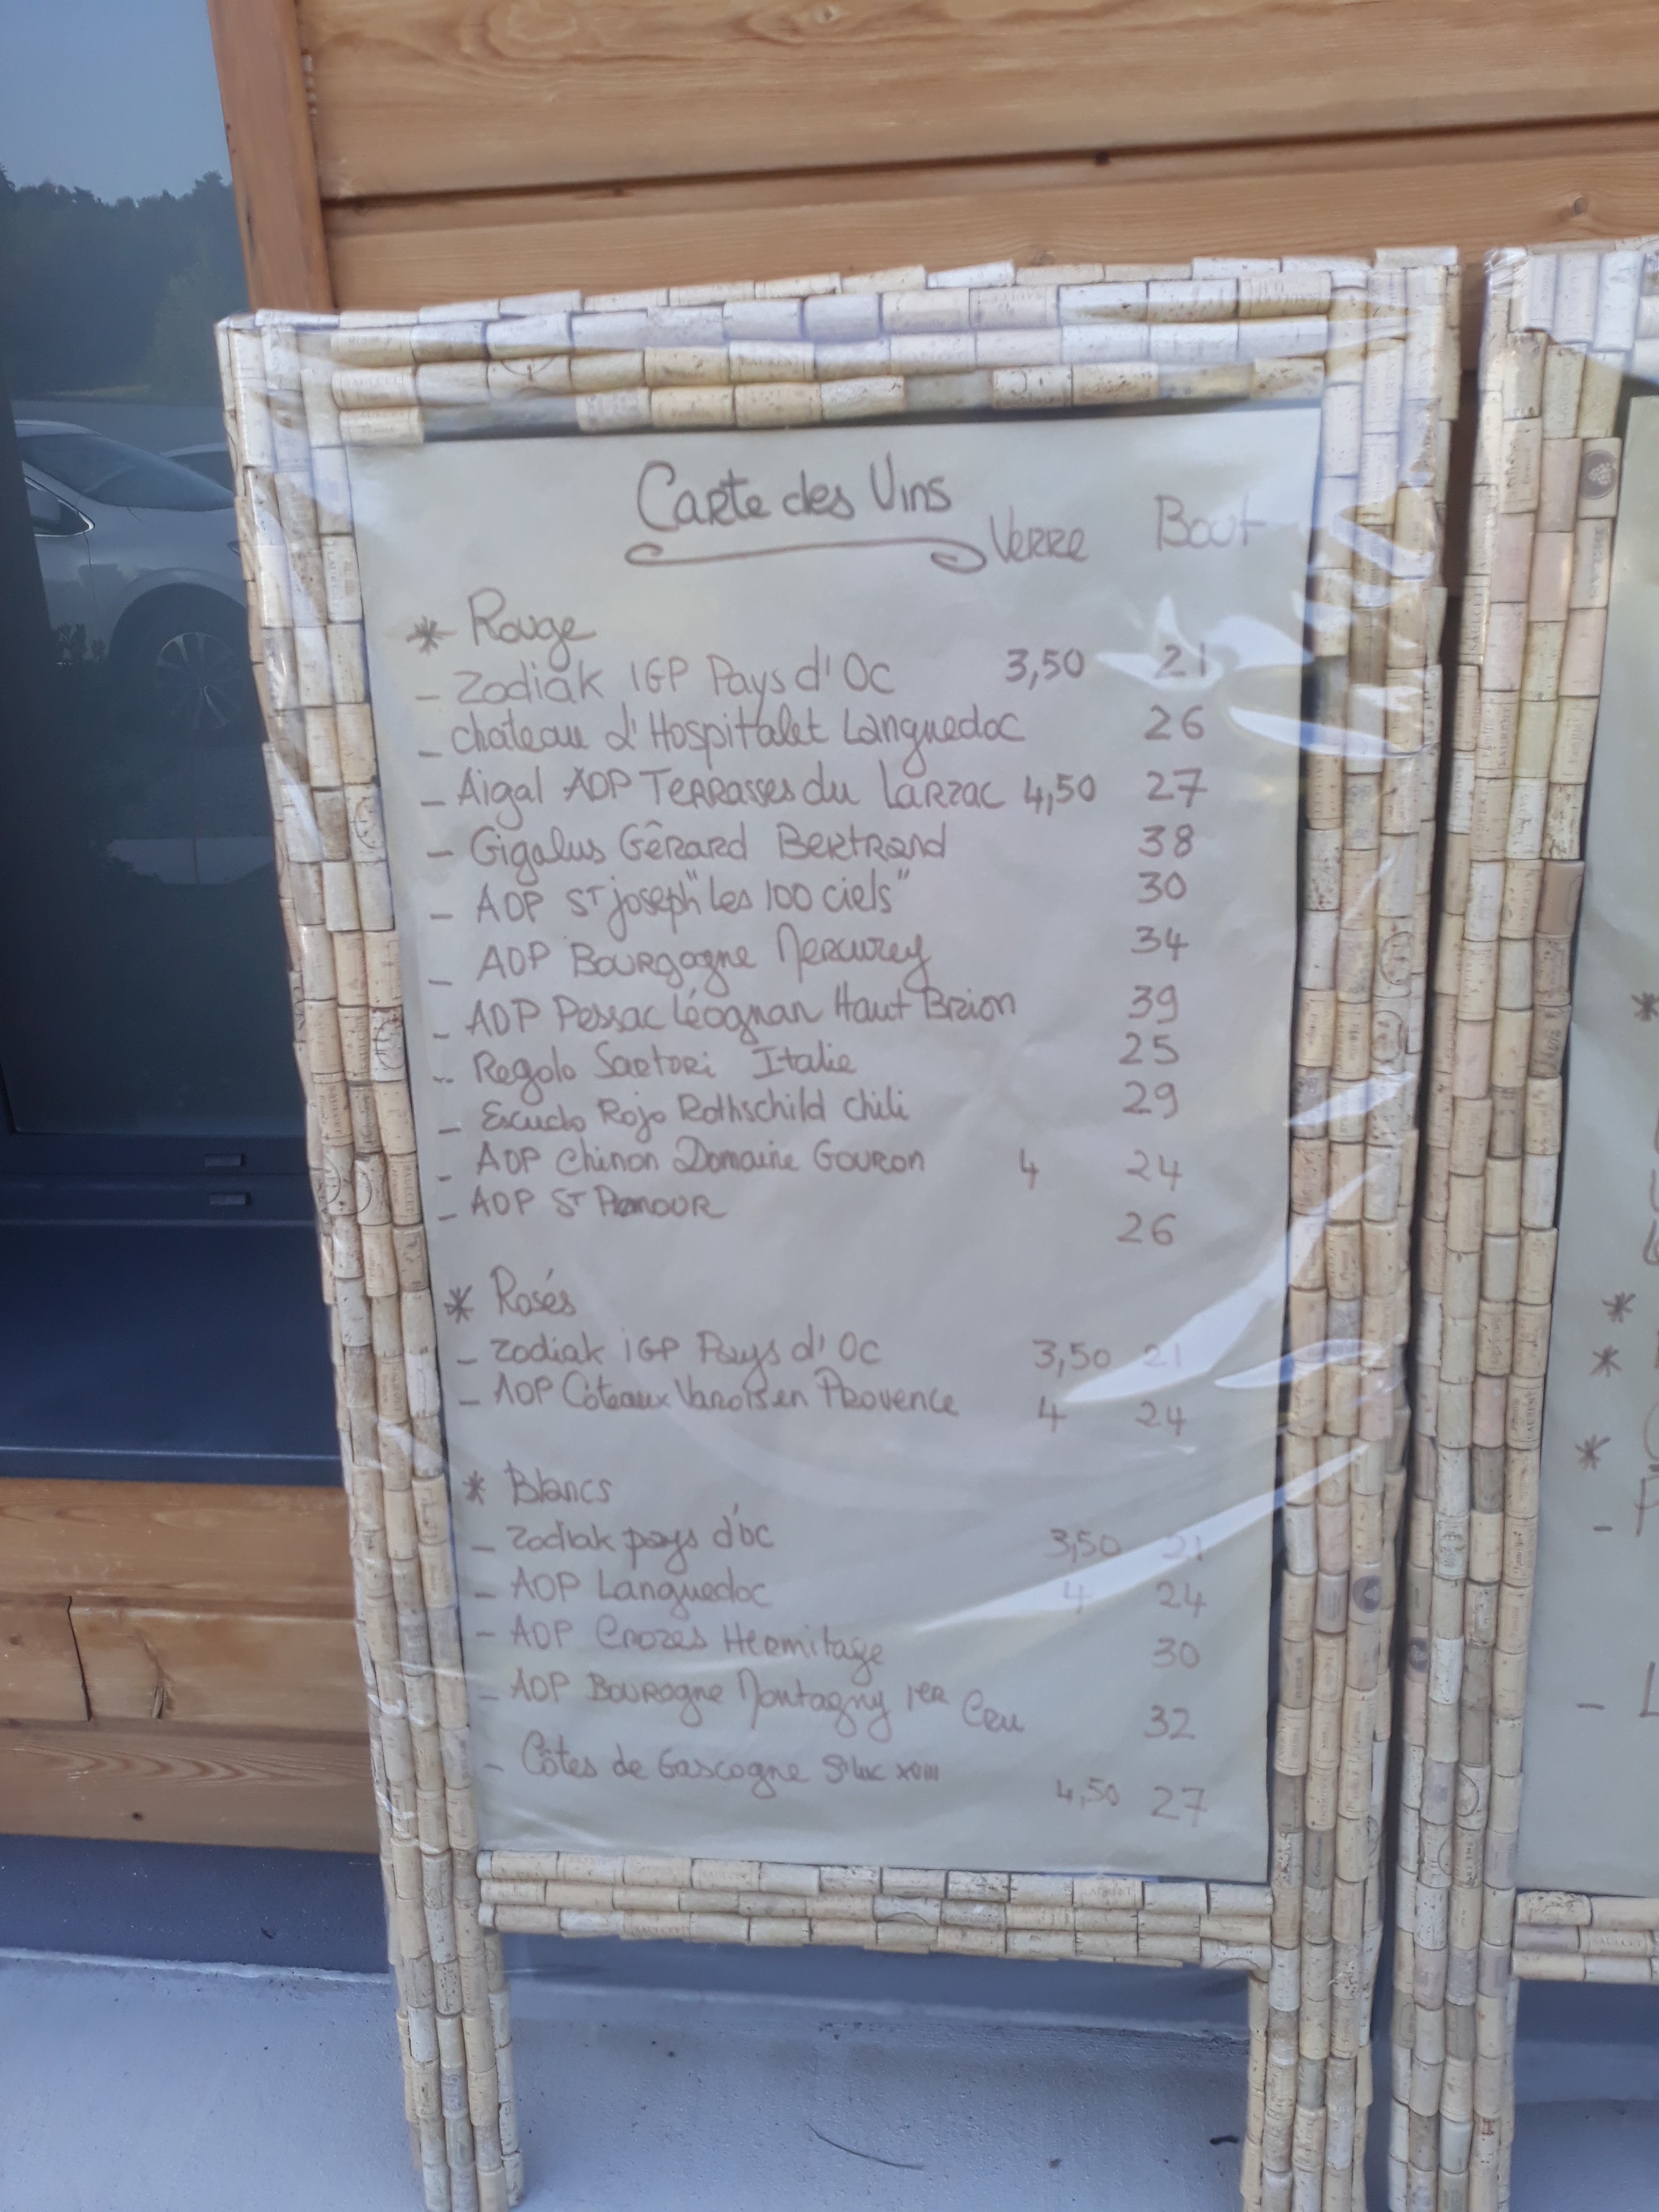 Carte des Vins
Verre Bout
* Rouge
- Zodiak IGP Pays d'Oc 3,50 21
- chateau d'Hospitalet Languedoc 26
- Aigal AOP Terrasses du Larzac 4,50 27
- Gigalus Gêrard Bertrand 38
- AOP ST joseph "Les 100 ciels" 30
- AOP Bourgogne Mercurey 34
- AOP Pessac Léognan Haut Brion 39
- Regolo Sartori Italie 25
- Escudo Rojo Rothschild chili 29
- AOP Chinon Domaine Gouron 4 24
- AOP ST Amour 26
* Rosés
- Zodiak iGP Pays d'Oc 3,50 21
- AOP Côteaux Varois en Provence 4 24
* Blancs
- Zodiak pays d'oc 3,50 21
- AOP Languedoc 4 24
- AOP Crozes Hermitage 30
- AOP Bourogne Montagny 1er Cru 32
- Côtes de Gascogne 4,50 27
*
*
*
*
-
- L